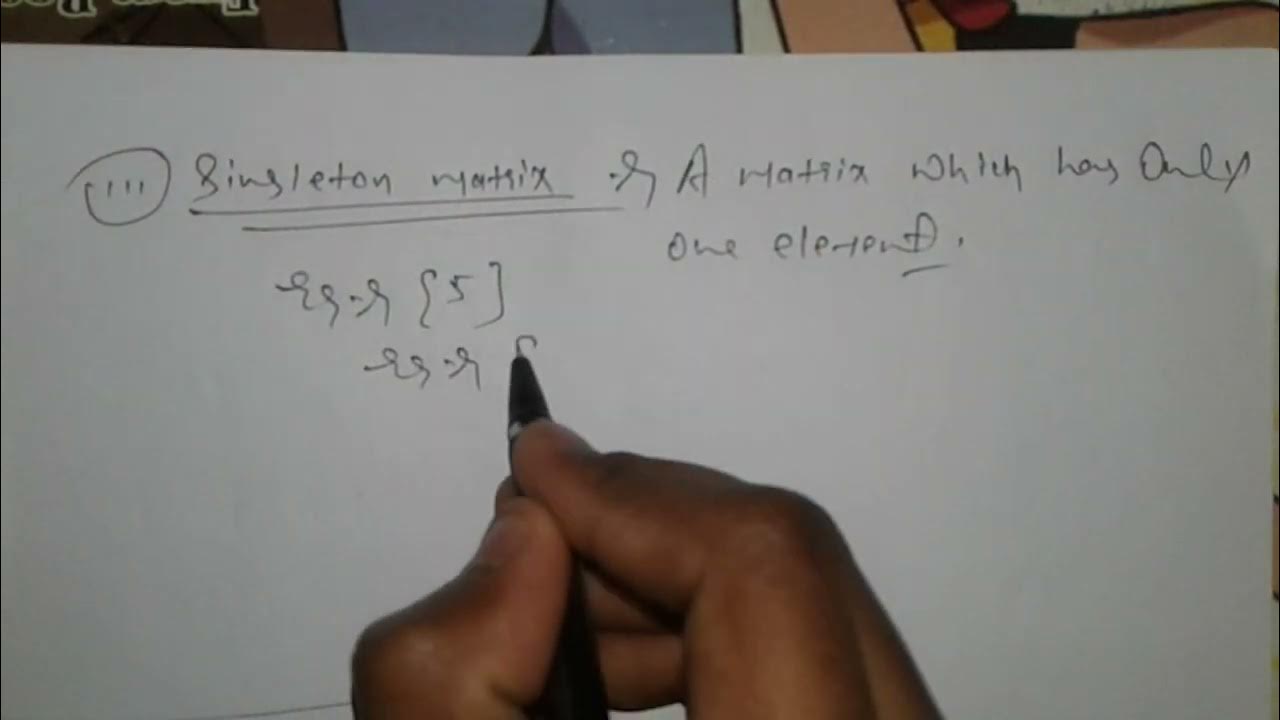 (iii) Singleton matrix :- A matrix which has only
one element.
eg :- [5]
eg :- [